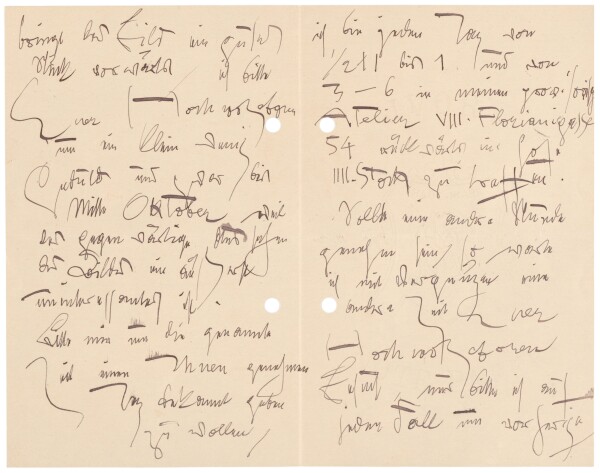 bringt das Bild ein gutes
Stück vorwärts ich bitte
Euer Hochwohlgeboren
um ein klein wenig
Geduld und zwar bis
Mitte Oktober weil
das gegenwärtige
des Bildes
uninteressant ist.
Bitte mir nur die genannte
Zeit einen Ihnen genehmen
Tag bekannt geben
zu wollen,
ich bin jeden Tag von
1/2 11 bis 1. und von
3 – 6 in meinem
Atelier VIII. Florianigasse
54 rückwärts im Hof.
IIII. Stock zu treffen.
Sollte eine andere Stunde
genehm sein so warte
ich mit Vergnügen eine
andere mit Euer
Hochwohlgeboren
Zeit, nur bitte ich auf
jeden Fall um vorherige